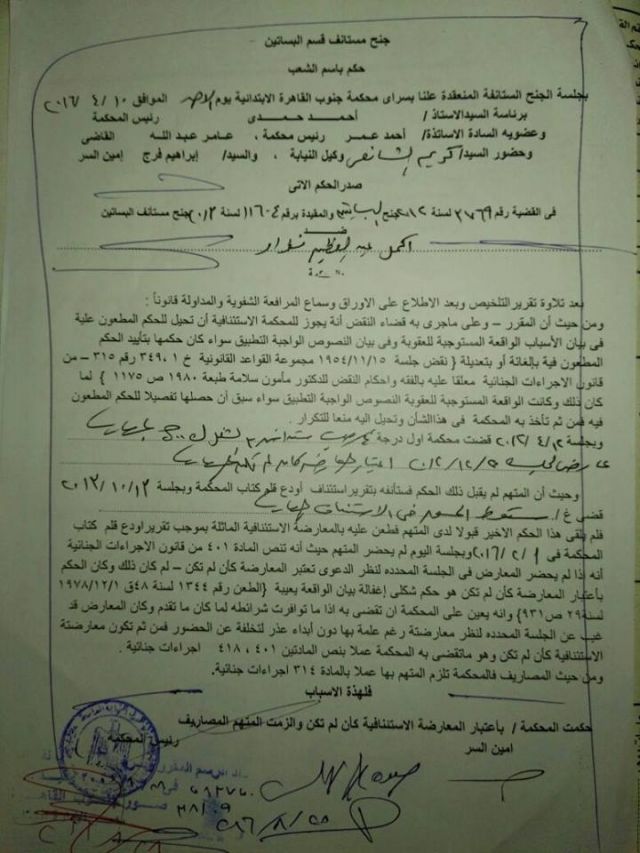 جنح مستانف قسم البساتين
حكم باسم الشعب
بجلسة الجنح المستانفة المنعقدة علنا بسراى محكمة جنوب القاهرة الابتدائية يوم الاحد الموافق ١٠ / ٤ / ٢٠١٦
برئاسة السيد الاستاذ / أحمد حمدى رئيس المحكمة
وعضويه السادة الاساتذة/ أحمد عمر رئيس محكمة ، عامر عبد الله القاضى
وحضور السيد/ كريم وكيل النيابة ، والسيد/ إبراهيم فرج إمين السر
صدر الحكم الاتى
فى القضية رقم ٣٧٦٩ لسنة ٢٠١٢ جنح البساتين والمقيدة برقم ١١٦٠٤ لسنة ٢٠١٢ جنح مستأنف البساتين
ضد
اكمل عبد العظيم
بعد تلاوة تقرير التلخيص وبعد الاطلاع على الاوراق وسماع المرافعة الشفوية والمداولة قانوناً :
ومن حيث أن المقرر – وعلى ماجرى به قضاء النقض أنة يجوز للمحكمة الاستئنافية أن تحيل للحكم المطعون علية
فى بيان الأسباب الواقعة المستوجبة للعقوبة وفى بيان النصوص الواجبة التطبيق سواء كان حكمها بتأييد الحكم
المطعون فية بإلغائة أو بتعديلة { نقض جلسة ١٩٥٤/١١/١٥ مجموعة القواعد القانونية خ ٣٤٩،١ رقم ٣١٥ – من
قانون الاجراءات الجنائية معلقا عليه بالفقه واحكام النقض للدكتور مأمون سلامة طبعة ١٩٨٠ ص ١١٧٥ } لما
كان ذلك وكانت الواقعة المستوجبة للعقوبة النصوص الواجبة التطبيق سواء سبق أن حصلها تفصيلا للحكم المطعون
فيه فمن ثم تأخذ به المحكمة فى هذا الشأن وتحيل اليه منعا للتكرار .
وبجلسة ٢٠١٢/٤/١٢ قضت محكمة اول درجة
٢٠١٢/١٢/ اعتبار المعارضة كان لم تكن
وحيث أن المتهم لم يقبل ذلك الحكم فستأنفه بتقرير استئناف أودع قلم كتاب المحكمة وبجلسة ٢٠١٣/١٠/١٣
قضى غ/ا بسقوط الحق فى الاستئناف
فلم يلقى هذا الحكم الاخير قبولا لدى المتهم فطعن عليه بالمعارضة الاستئنافية الماثلة بموجب تقرير اودع قلم كتاب
المحكمة فى ٢٠١٦/٢/١ وبجلسة اليوم لم يحضر المتهم حيث أنه تنص المادة ٤٠١ من قانون الاجراءات الجنائية
أنه إذا لم يحضر المعارض فى الجلسة المحدده لنظر الدعوى تعتبر المعارضة كأن لم تكن – لم كان ذلك وكان الحكم
بأعتبار المعارضة كأن لم تكن هو حكم شكلى إغفالة بيان الواقعة يعيبة {الطعن رقم ١٣٤٤ لسنة ٤٨ق ١٩٧٨/١٢/١
لسنة٢٩ ص٩٣١} وانه يعين على المحكمة ان تقضى به اذا ما توافرت شرائطه لما كان ما تقدم وكان المعارض قد
غيب عن الجلسة المحدده لنظر معارضتة رغم علمة بها دون أبداء عذر لتخلفة عن الحضور فمن ثم تكون معارضتة
الاستئنافية كأن لم تكن وهو ماتقضى به المحكمة عملا بنص المادتين ٤٠١ ، ٤١٨ اجراءات جنائية .
ومن حيث المصاريف فالمحكمة تلزم المتهم بها عملا بالمادة ٣١٤ اجراءات جنائية.
فلهذة الاسباب
حكمت المحكمة / بأعتبار المعارضة الاستئنافية كأن لم تكن والزمت المتهم المصاريف
امين السر رئيس المحكمة